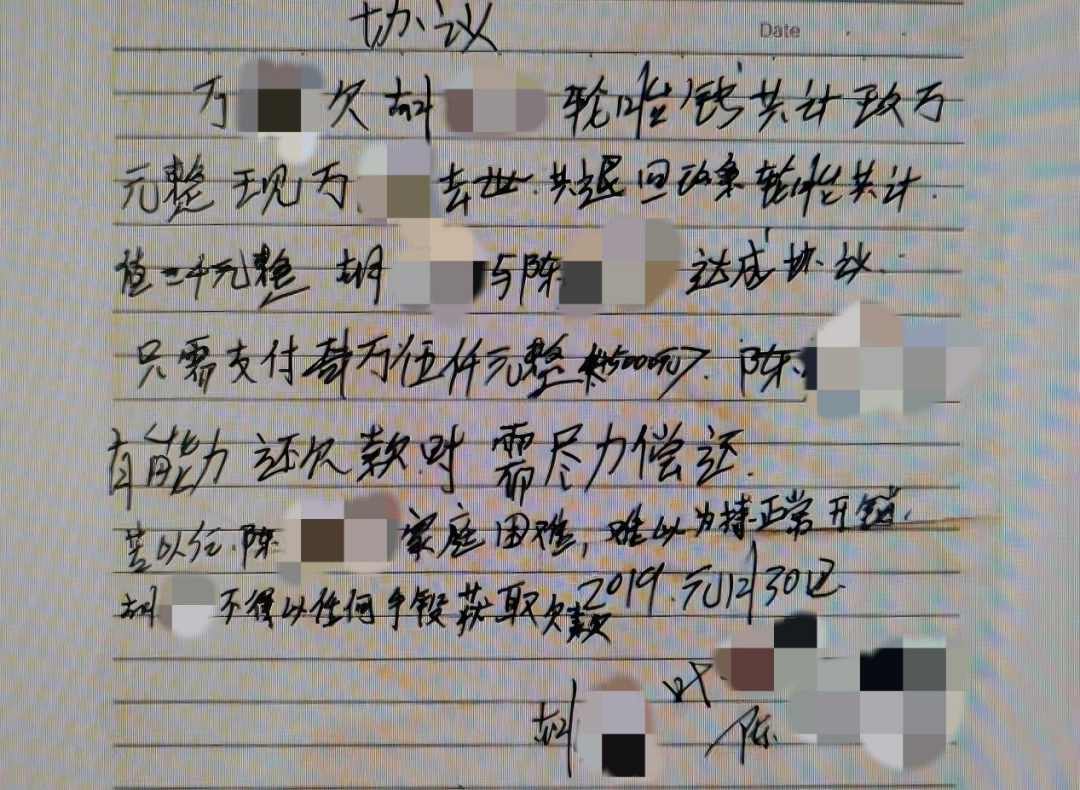 协议
Date
万 欠 胡 轮胎钱共计 万
元整 现万 去世.共退回 轮胎共计.
值二千元整 胡 与陈 达成协议.
只需支付 万伍仟元整 陈
有能力还欠款时需尽力偿还.
陈 家庭困难,难以为持正常开销.
胡 不得以任何手段获取欠款
2019.元12月30日
胡 叶
陈